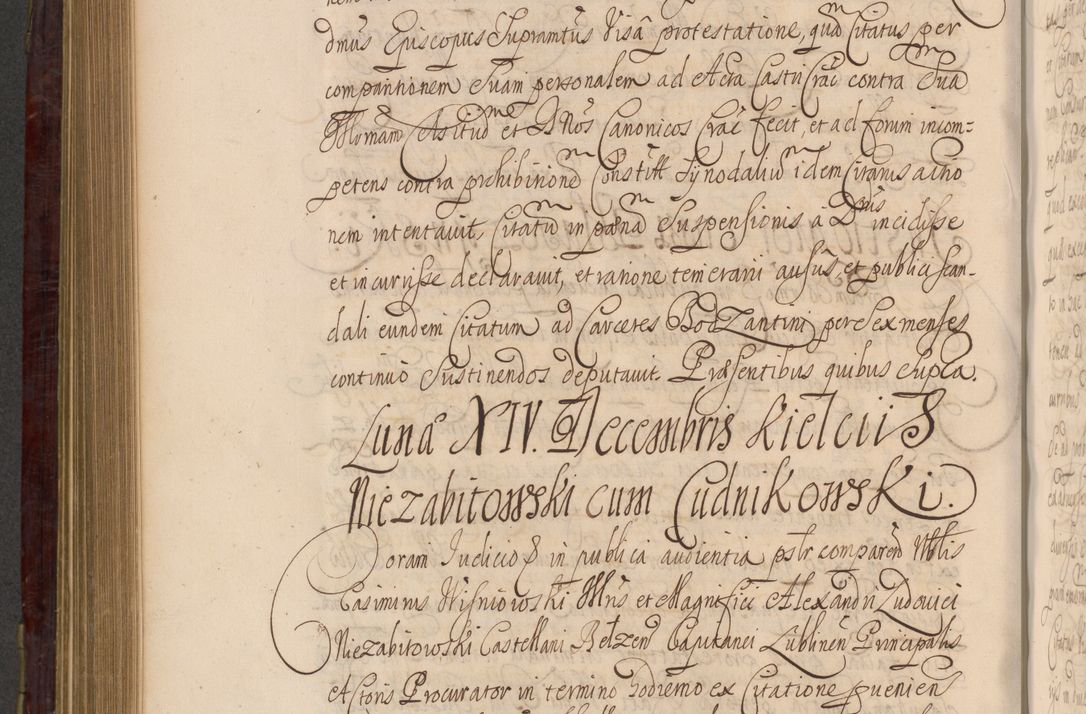 dmus Episcopus Supramtus Visa protestatione, quod Citatus per
comparitionem Suam personalem ad Acta Castri Crac contra Sua
et DNos Canonicos Crac fecit, et ad forum incom=
petens contra prohibitione Constitt Synodaliu idem Citatus actio
nem intentavit, Citatu in paena Suspensionis a Divis incidisse
et incurrisse declaravit, et ratione temerarii ausus, et publici scan-
dali eundem Citatum ad Carceres BodZantini per Sex menses
continuo Sustinendos deputavit. Praesentibus quibus Supra.
Luna XIV. Decembris Kielciis
Niezabitowski cum CudniKowsKi.
Coram Judicio in publica audientia pstr comparen Nblis
Casimirus Wisniowski Mfris et Magnifici Alexandri Ludovici
Niezabitowski Castellani Belzen Capitanei Lublinen Principalis
Actoris Procurator in termino hodierno ex Citatione pveniens